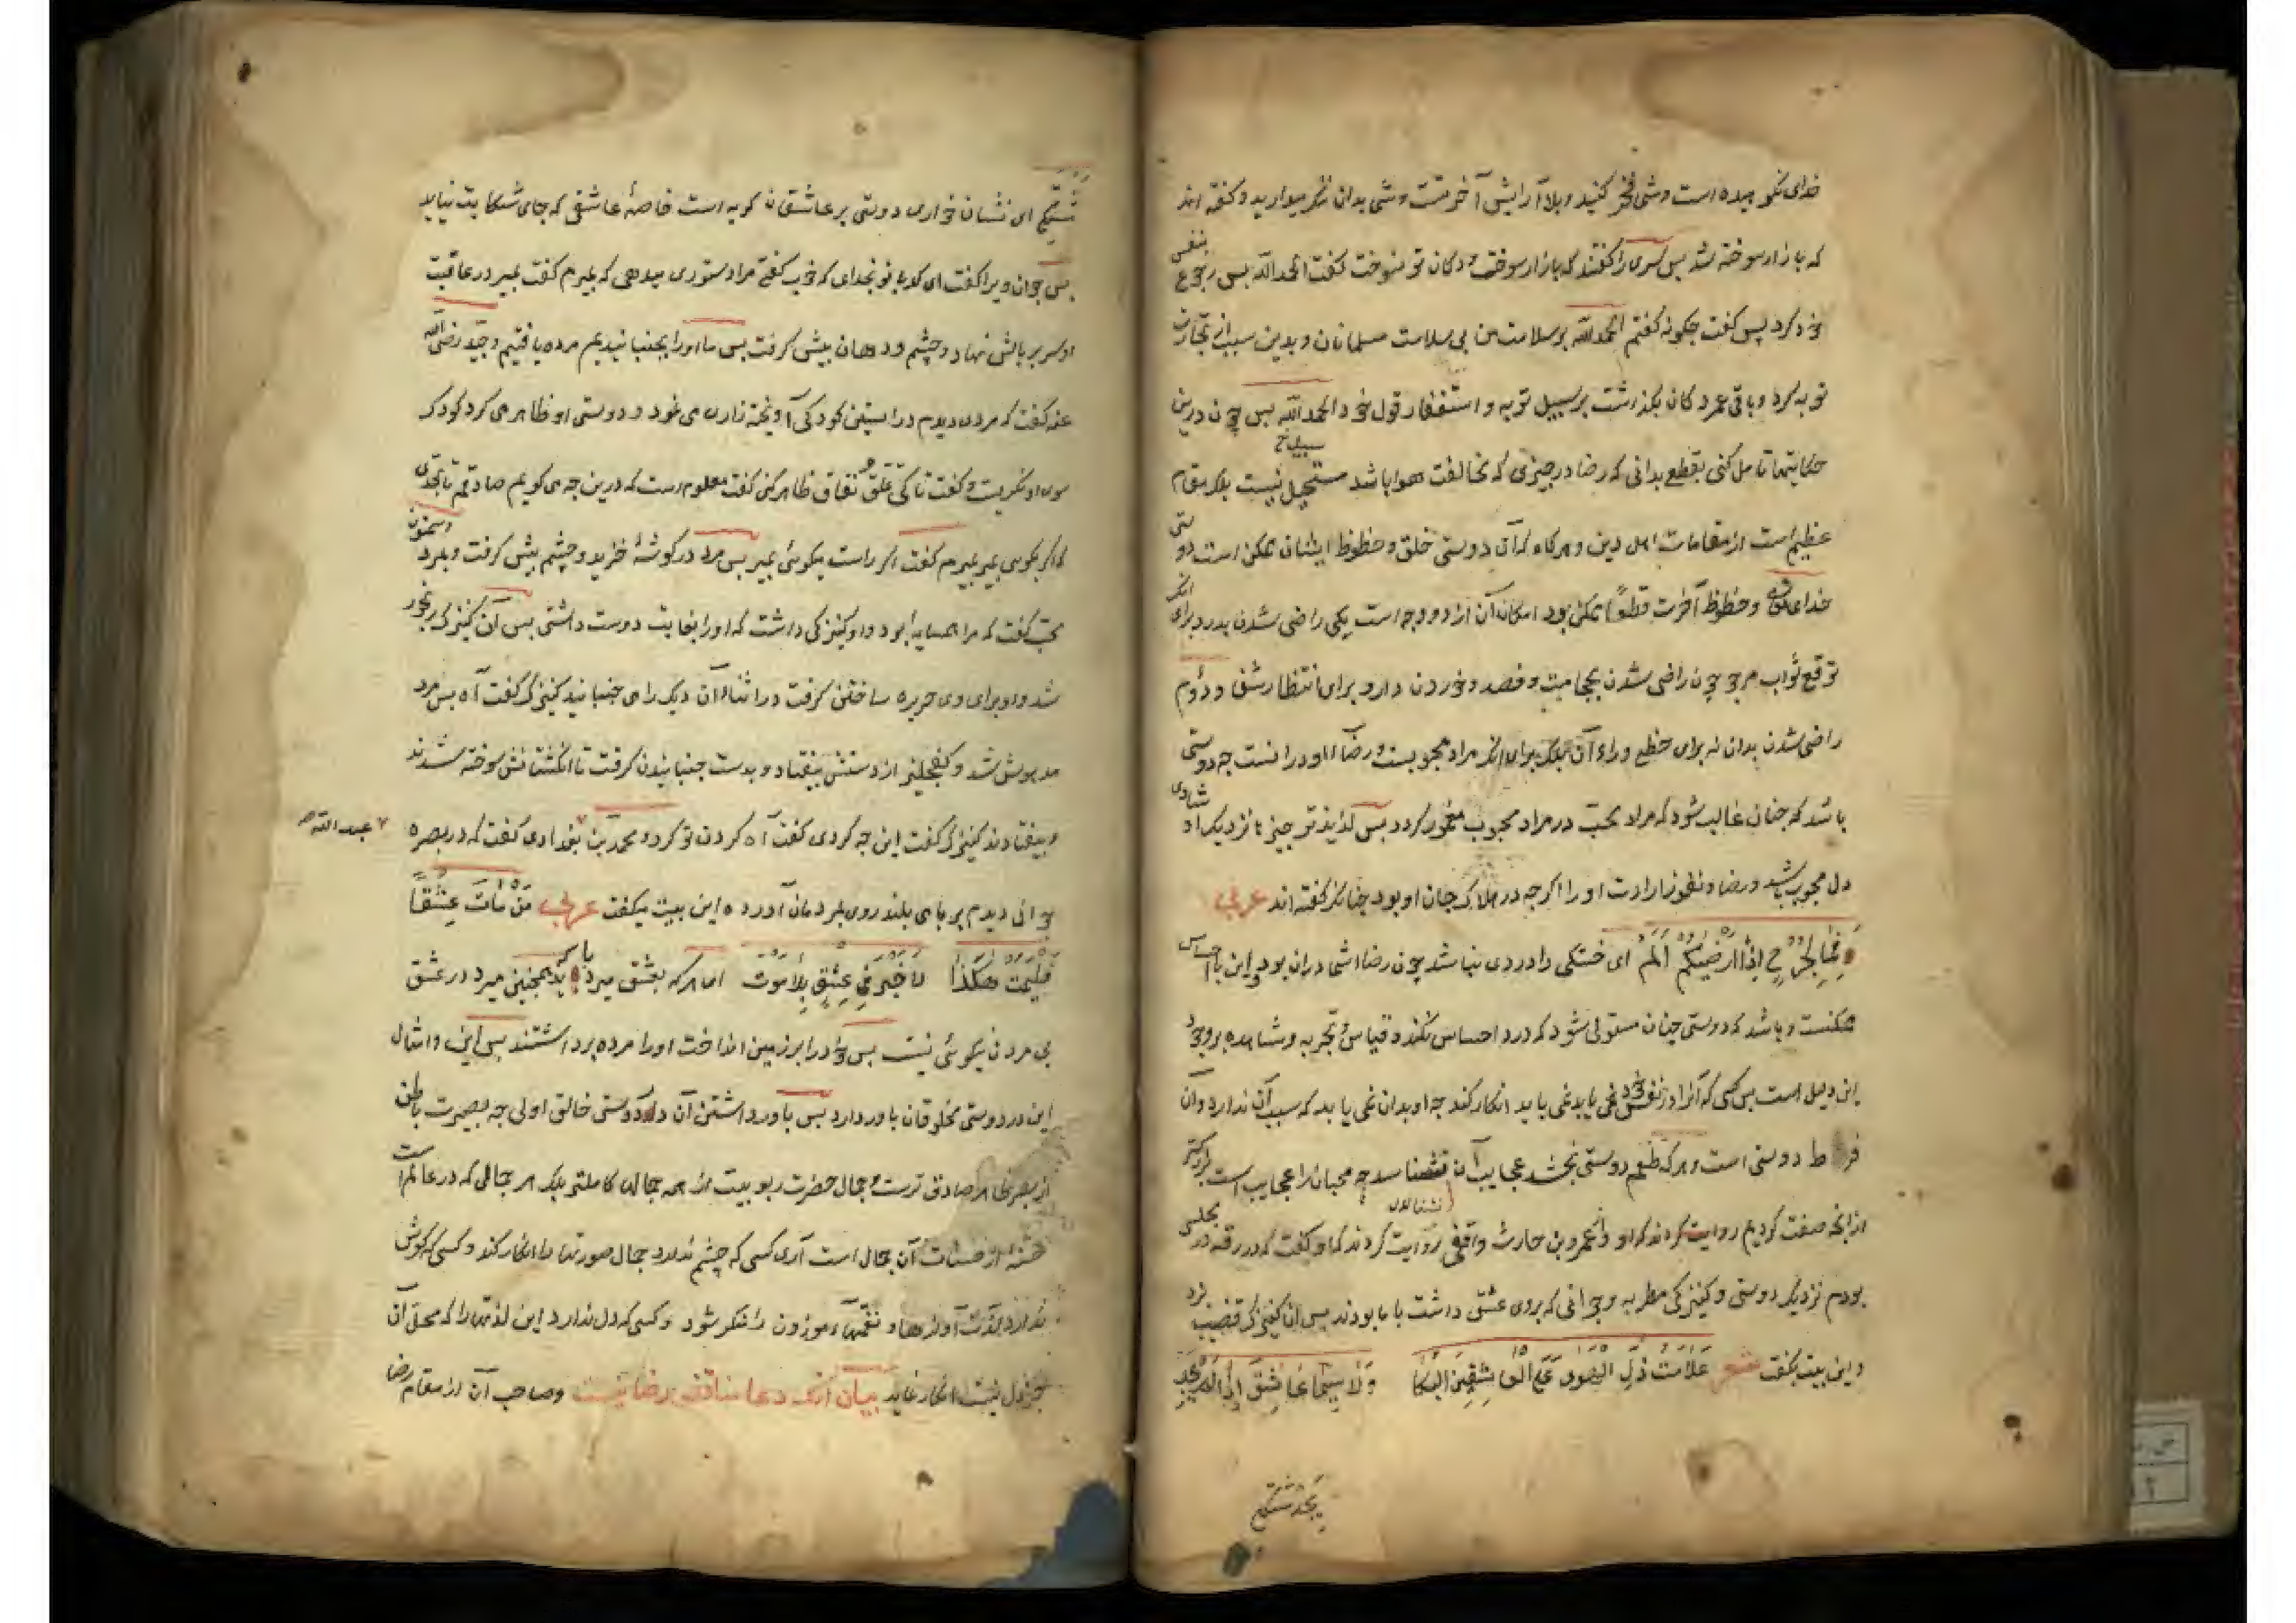 خدای نکوهیده است وشی فخر کنید وبلا آرایش آخرتست وشی بدان ننکر میدارید وکفته اند
که بازار سوخته شد پس سری را کفتند که بازار سوخت و دکان تو نسوخت کفت الحمد الله پس رجوع بنفس
خود کرد پس کفت چکونه کفتم الحمد لله بر سلامت من بی سلامت مسلمانان وبدین سبب از تجارت
توبه کرد وباقی عمر دکان بکذاشت بر سبیل توبه واستغفار قول خود الحمد الله پس چون درین
حکایتها تامل کنی بقطع بدانی که رضا در چیزی که مخالفت هوا باشد مستحیل نیست بلکه مقام
عظیم است از مقامات اهل دین وهرکاه که آن در دوستی خلق وحظوظ ایشان ممکن است دوستی
خدای تعالی وحظوظ آخرت قطعًا ممکن بود امکان آن از دو وجه است یکی راضی شدن بدرد برای آنکه
توقع ثواب مرجو چون راضی شدن بحجامت وفصد وخوردن دارو برای انتظار شفا ودوم
راضی شدن بدان نه برای حظی وراء آن بلکه برای آنکه مراد محبوبست ورضاء او در انست چه دوستی
باشد که چنان غالب شود که مراد محب در مراد محبوب مغمور کردد پس لذیذتر چیزها نزدیک او شادی
دل محبوب باشد ورضا ونفوذ ارادت او را اکرچه در هلاک جان او بود چنانکه کفته اند عربی
فما لجرح اذا ارضیکم الم ای خستکی را دردی نباشد چون رضا شما دران بود واین با احساس
ممکنست وباشد که دوستی چنان مستولی شود که درد احساس نکند وقیاس وتجربه ومشاهده بر وجود
این دلیل است پس کسی که آنرا در نفس خود نمی یابد نمی باید انکار کند چه او بدان نمی یابد که سبب آن ندارد وآن
فرط دوستی است وهرکه طعم دوستی نچشد عجایب آن نشناسد چه محبان را عجایب است بزرکتر
از انچه صفت کردیم روایت کردند که او از عمرو بن حارث واقفی روایت کردند که او کفت که در رقه در مجلسی
بودم نزدیک دوستی وکنیزکی مطربه وجوانی که بروی عشق داشت با ما بودند پس آن کنیزک قضیب بزد
واین بیت بکفت شعر علامت ذل الهوی علی العاشقین البکا ولا سیما عاشق اذا لم یجد
یجد مشتکی
مشتکی ای نشان خواری دوستی بر عاشقان کریه است خاصهٔ عاشقی که جای شکایت نیابد
پس جوان ویرا کفت ای کدبانو بخدای که خوب کفتی مرا دستوری میدهی که بمیرم کفت بمیر در عاقبت
او سر بر بالش نهاد وچشم ودهان پیش کرفت پس ما اورا بجنبانیدیم مرده یافتیم وجنید رضی الله
عنه کفت که مردی دیدم در آستین کودکی آویخته زاری می نمود ودوستی او ظاهر می کرد کودک
سوی او نکریست وکفت تا کی تملق ونفاق ظاهر کنی کفت معلومست که درین چه می کویم صادقم تا بحدی
که اکر بکوی بمیر بمیرم کفت اکر راست میکوئی بمیر پس مرد در کوشهٔ خزید وچشم پیش کرفت وبمرد وسمنون
محب کفت که مرا همسایه بود واو کنیزکی داشت که اورا بغایت دوست داشتی پس آن کنیزک رنجور
شد واو برای وی حریره ساختن کرفت در اثناء آن دیک را می جنبانید کنیزک کفت آه پس مرد
مدهوش شد وکفجلیز از دستش بیفتاد وبدست جنبانیدن کرفت تا انکشتانش سوخته شدند
وبیفتادند کنیزک کفت این چه کردی کفت آه کردن تو کرد ومحمد بن بغدادی کفت که در بصره
عبد الله
جوانی دیدم بر بامی بلند روی بمردمان آورده این بیت میکفت عربی من مات عشقًا
فلیمت هکذا لا خیر فی عشق بلا موت اما هرکه بعشق میرد باید که همچنین میرد در عشق
بی مردن نیکوئی نیست پس خود را بر زمین انداخت اورا مرده برداشتند پس این وامثال
این در دوستی مخلوقان باور دارد پس باور داشتن آن در دوستی خالق اولی چه بصیرت باطن
از بصر ظاهر صادق ترست وجمال حضرت ربوبیت از همه جمالها کاملتر بلکه هر جمالی که در عالم است
حسنه از حسنات آن جمال است آری کسی که چشم ندارد جمال صورتها را انکار کند وکسی که کوش
ندارد لذت آوازها ونغمهاء موزون را منکر شود وکسی که دل ندارد این لذتها را که محل آن
جز دل نیست انکار نماید بیان آنکه دعا مناقض رضا نیست وصاحب آن از مقام رضا